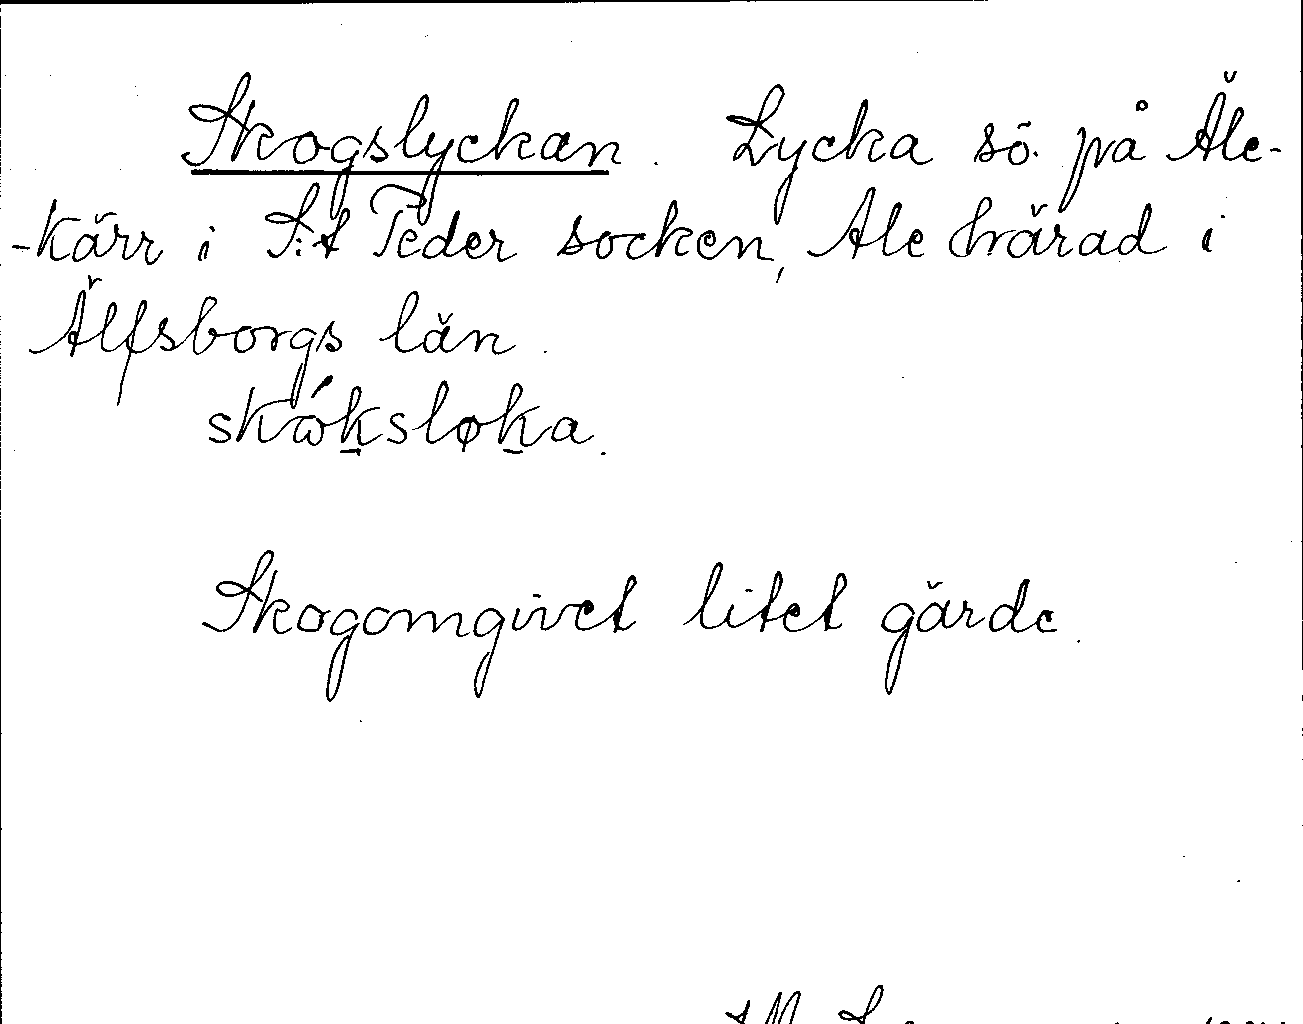 Skogslyckan. Lycka sö. på Äle-
-kärr i S:t Peder socken, Ale härad i
Älfsborgs län.
skώk̲sløk̲a.
Skogomgivet litet gärde.